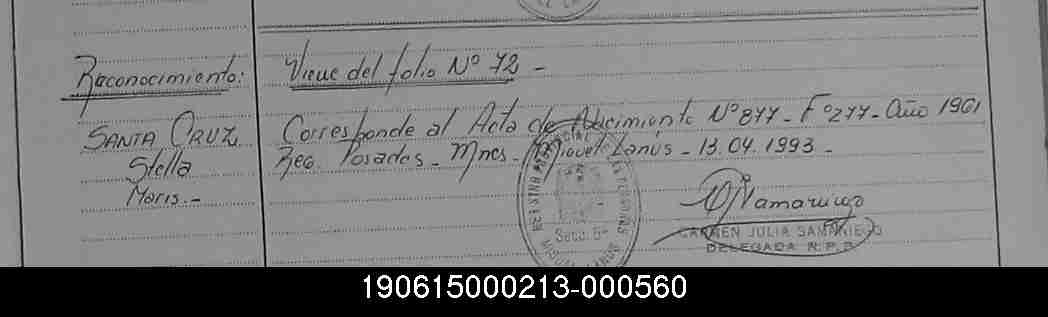 Reconocimiento:
Viene del folio Nº 72 -
SANTA CRUZ
Stella
Maris.-
Corresponde al Acta de Nacimiento Nº 877 - Fº 277 - Año 1961
Reg. Posadas - Mnes - Miguel Lanús - 13.04.1993 -
Secc. 5ª
CARMEN JULIA SAMANIEGO
DELEGADA R.P.P.
190615000213-000560